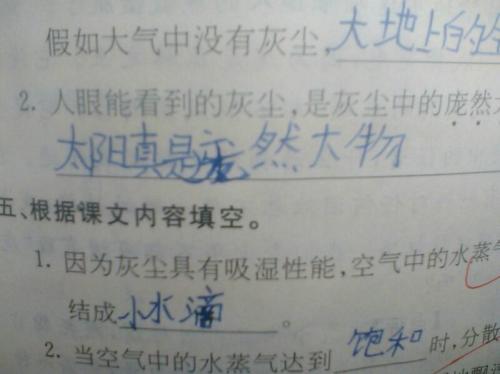 假如大气中没有灰尘,大地上的
2. 人眼能看到的灰尘,是灰尘中的庞然
太阳真是庞然大物
五、根据课文内容填空。
1. 因为灰尘具有吸湿性能,空气中的水蒸气
结成小水滴。
2. 当空气中的水蒸气达到饱和时,分散